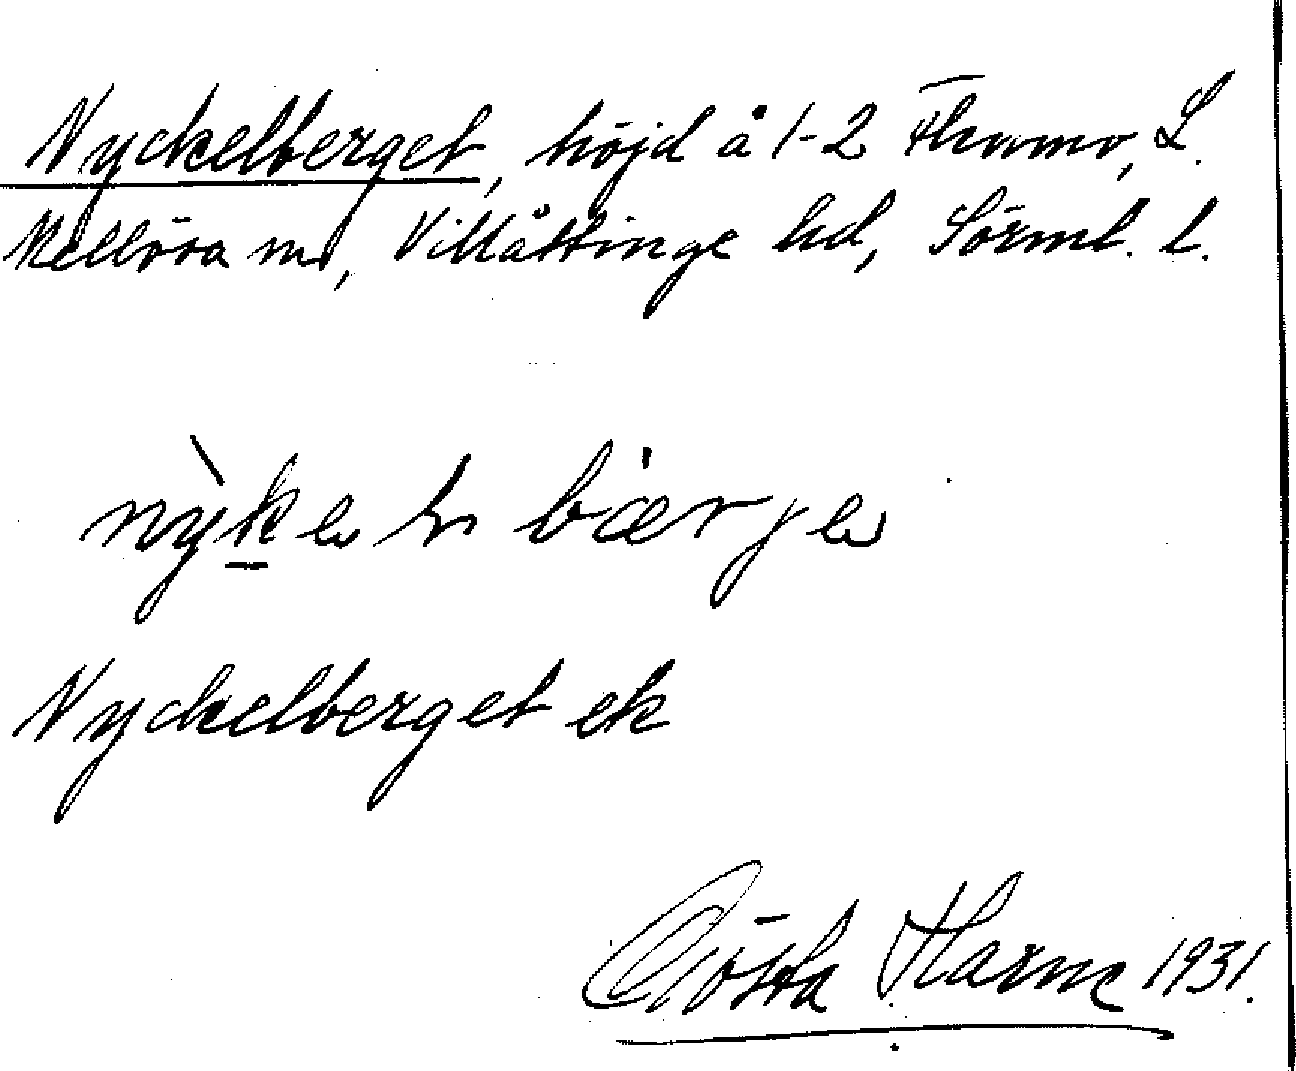 Nyckelberget, höjd å 1-2 Flenmo, L.
Mellösa sn, Villåttinge hd, Sörml. l.
Nyckelberget ek
Gösta Harne 1931.